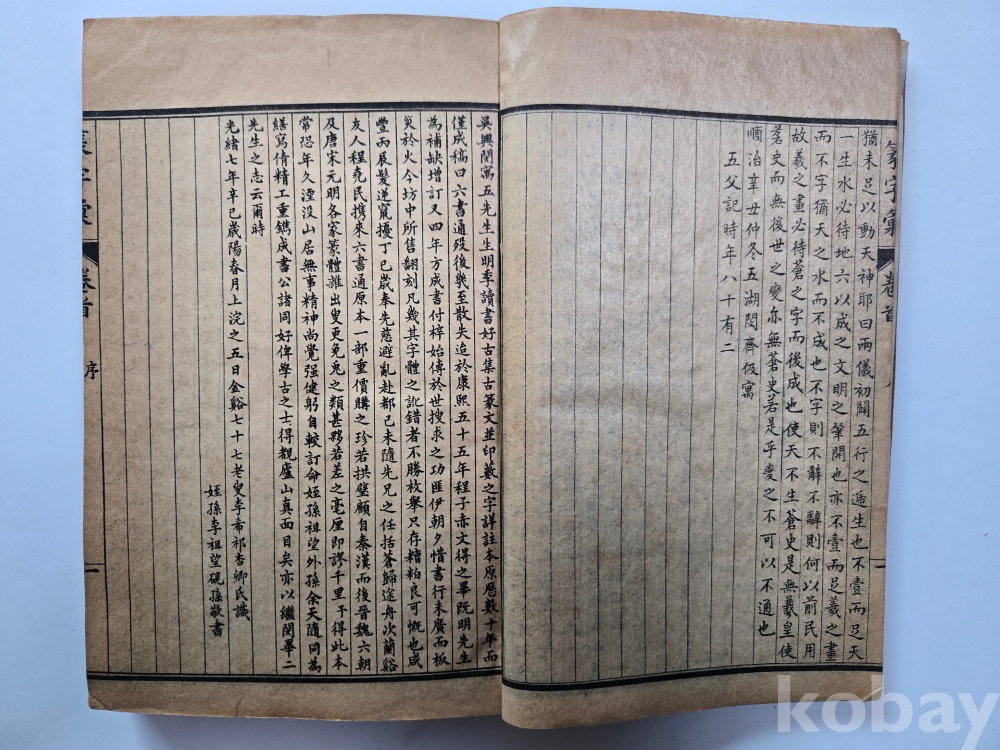 篆字彙
卷首
八
猶未足以動天神耶曰兩儀初闢五行之遁生也不壹而足天
一生水必待地六以成之文明之肇開也亦不壹而足羲之畫
而不字猶天之水而不成也不字則不辭不辭則何以前民用
故羲之畫必待蒼之字而後成也使天不生蒼史是無羲皇使
蒼史而無後世之變亦無蒼史若是乎變之不可以不通也
順治辛丑仲冬五湖閔齊伋寓
五父記時年八十有二
吳興閔寓五先生生明季讀書好古集古篆文並印藪之字詳註本原歷數十年而
僅成稿曰六書通歿後幾至散失迨於康熙五十五年程子赤文得之畢既明先生
為補缺增訂又四年方成書付梓始傳於世搜求之功匪伊朝夕惜書行未廣而板
災於火今坊中所售翻刻凡幾其字體之訛錯者不勝枚舉只存糟粕良可慨也咸
豐丙辰髮逆竄擾丁巳歲奉先慈避亂赴鄀己未隨先兄之任括蒼歸途舟次蘭谿
友人程堯民携來六書通原本一部重價購之珍若拱璧顧自秦漢而後晉魏六朝
及唐宋元明各家篆體雜出叟更兔兔之類甚夥若差之毫厘即謬千里予得此本
常恐年久湮没山居無事精神尚覺强健躬自較訂命姪孫祖望外孫余天隨同為
繕寫倩精工重鐫成書公諸同好俾學古之士得觀廬山真面目矣亦以繼閔畢二
先生之志云爾時
光緒七年辛巳歲陽春月上浣之五日金谿七十七老叟李希祁杏卿氏識
姪孫李祖望硯孫敬書
篆字彙
卷首
序
一
kobay